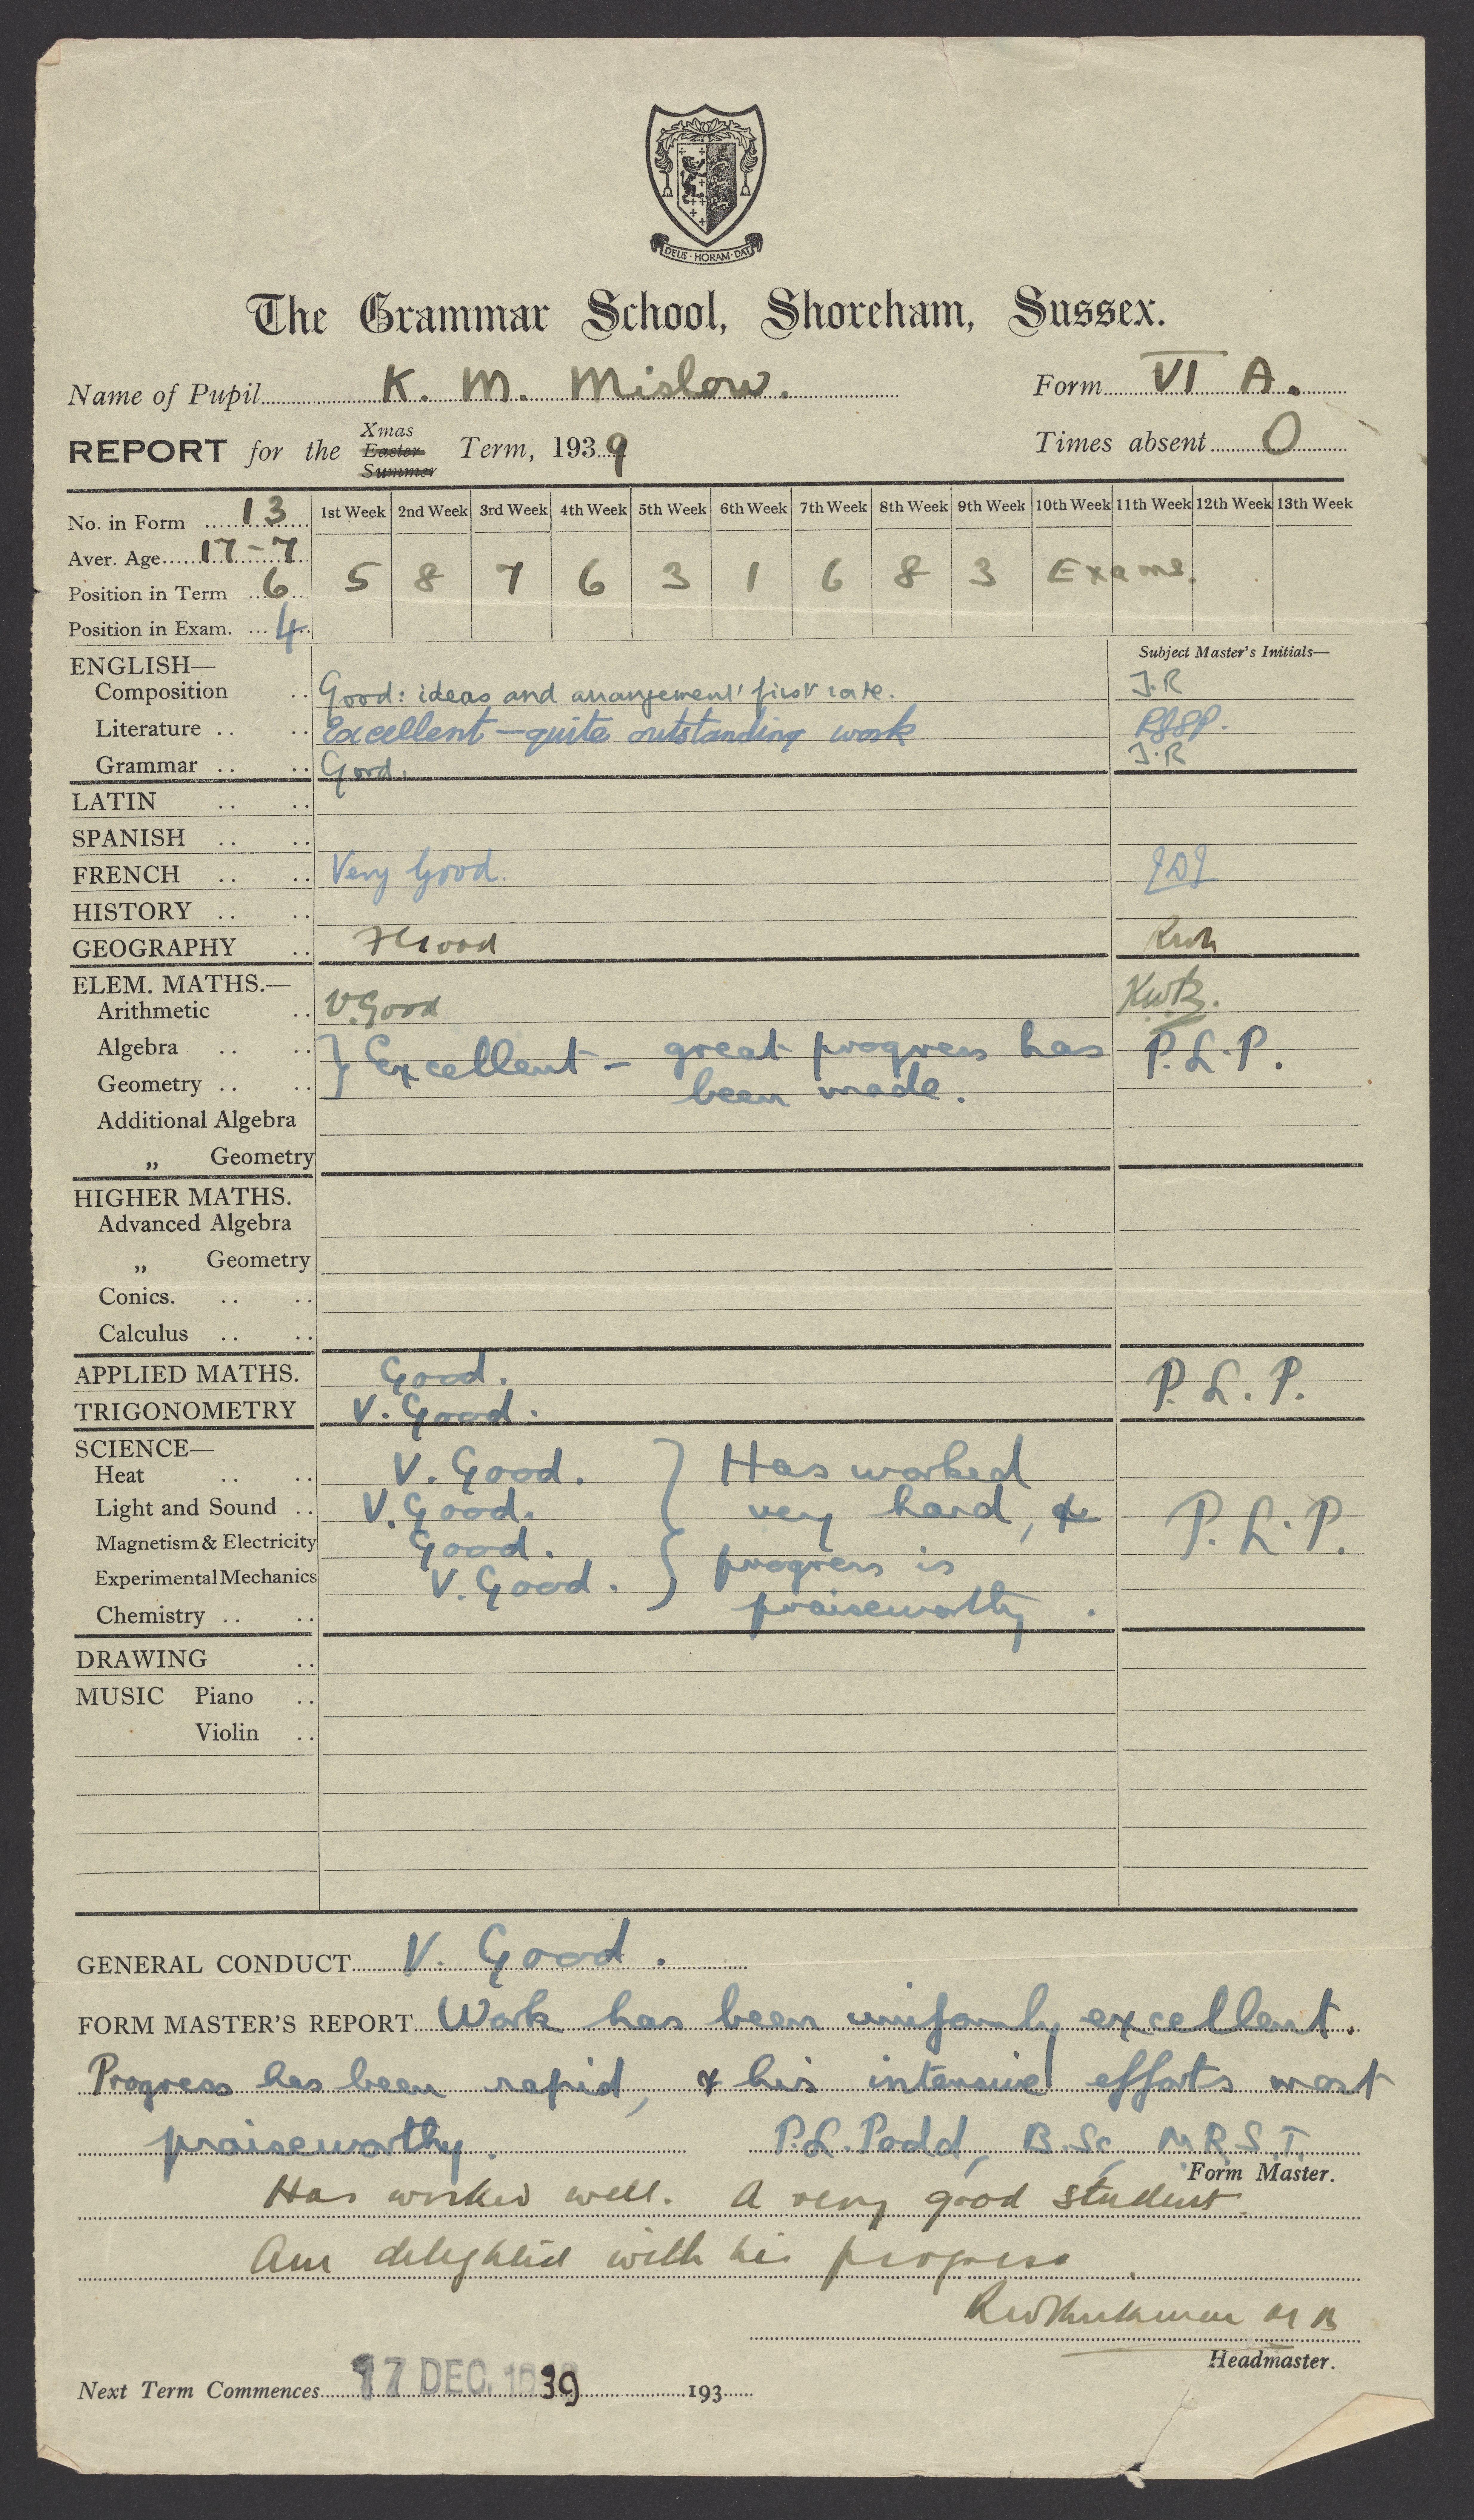 DEUS · HORAM · DAT
The Grammar School, Shoreham, Sussex.
Name of Pupil K. M. Mislow. Form VI A.
REPORT for the Xmas Easter Summer Term, 1939 Times absent 0
No. in Form 13 1st Week 2nd Week 3rd Week 4th Week 5th Week 6th Week 7th Week 8th Week 9th Week 10th Week 11th Week 12th Week 13th Week
Aver. Age 17-7
Position in Term 6 5 8 7 6 3 1 6 8 3 Exams.
Position in Exam. 4
ENGLISH— Subject Master's Initials—
Composition Good: ideas and arrangement first rate. J.R
Literature Excellent – quite outstanding work
Grammar Good. J.R
LATIN
SPANISH
FRENCH Very Good.
HISTORY
GEOGRAPHY Good
ELEM. MATHS.—
Arithmetic V. Good
Algebra } Excellent – great progress has P.L.P.
Geometry been made.
Additional Algebra
„ Geometry
HIGHER MATHS.
Advanced Algebra
„ Geometry
Conics.
Calculus
APPLIED MATHS. Good. P.L.P.
TRIGONOMETRY V. Good.
SCIENCE—
Heat V. Good. } Has worked
Light and Sound V. Good. very hard, & P.L.P.
Magnetism & Electricity Good. progress is
Experimental Mechanics V. Good. praiseworthy.
Chemistry
DRAWING
MUSIC Piano
Violin
GENERAL CONDUCT V. Good.
FORM MASTER'S REPORT Work has been uniformly excellent.
Progress has been rapid, & his intensive efforts most
praiseworthy. P.L. Podd, B.Sc, M.R.S.T.
Form Master.
Has worked well. A very good student.
Am delighted with his progress.
Headmaster.
Next Term Commences 17 DEC. 1939 193